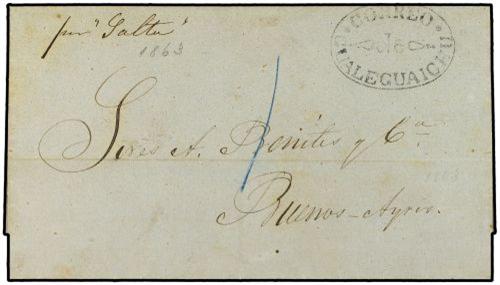 per "Salto"
1863
CORREO
GUALEGUAICHU
Sres A. Benites y Ca.
1863
Buenos-Ayres.